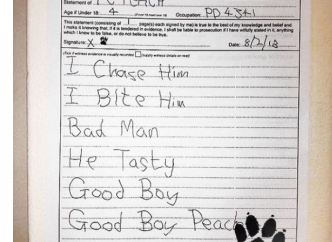 Statement of PC PEACH
Age if Under 18 4 Occupation: PD 4341
This statement (consisting of 1 page(s) each signed by me) is true to the best of my knowledge and belief and
I make it knowing that, if it is tendered in evidence, I shall be liable to prosecution if I have wilfully stated in it, anything
which I know to be false, or do not believe to be true.
Signature: X Date: 8/2/13
(Tick if witness evidence is visually recorded (supply witness details on rear)
I Chase Him
I Bite Him
Bad Man
He Tasty
Good Boy
Good Boy Peach